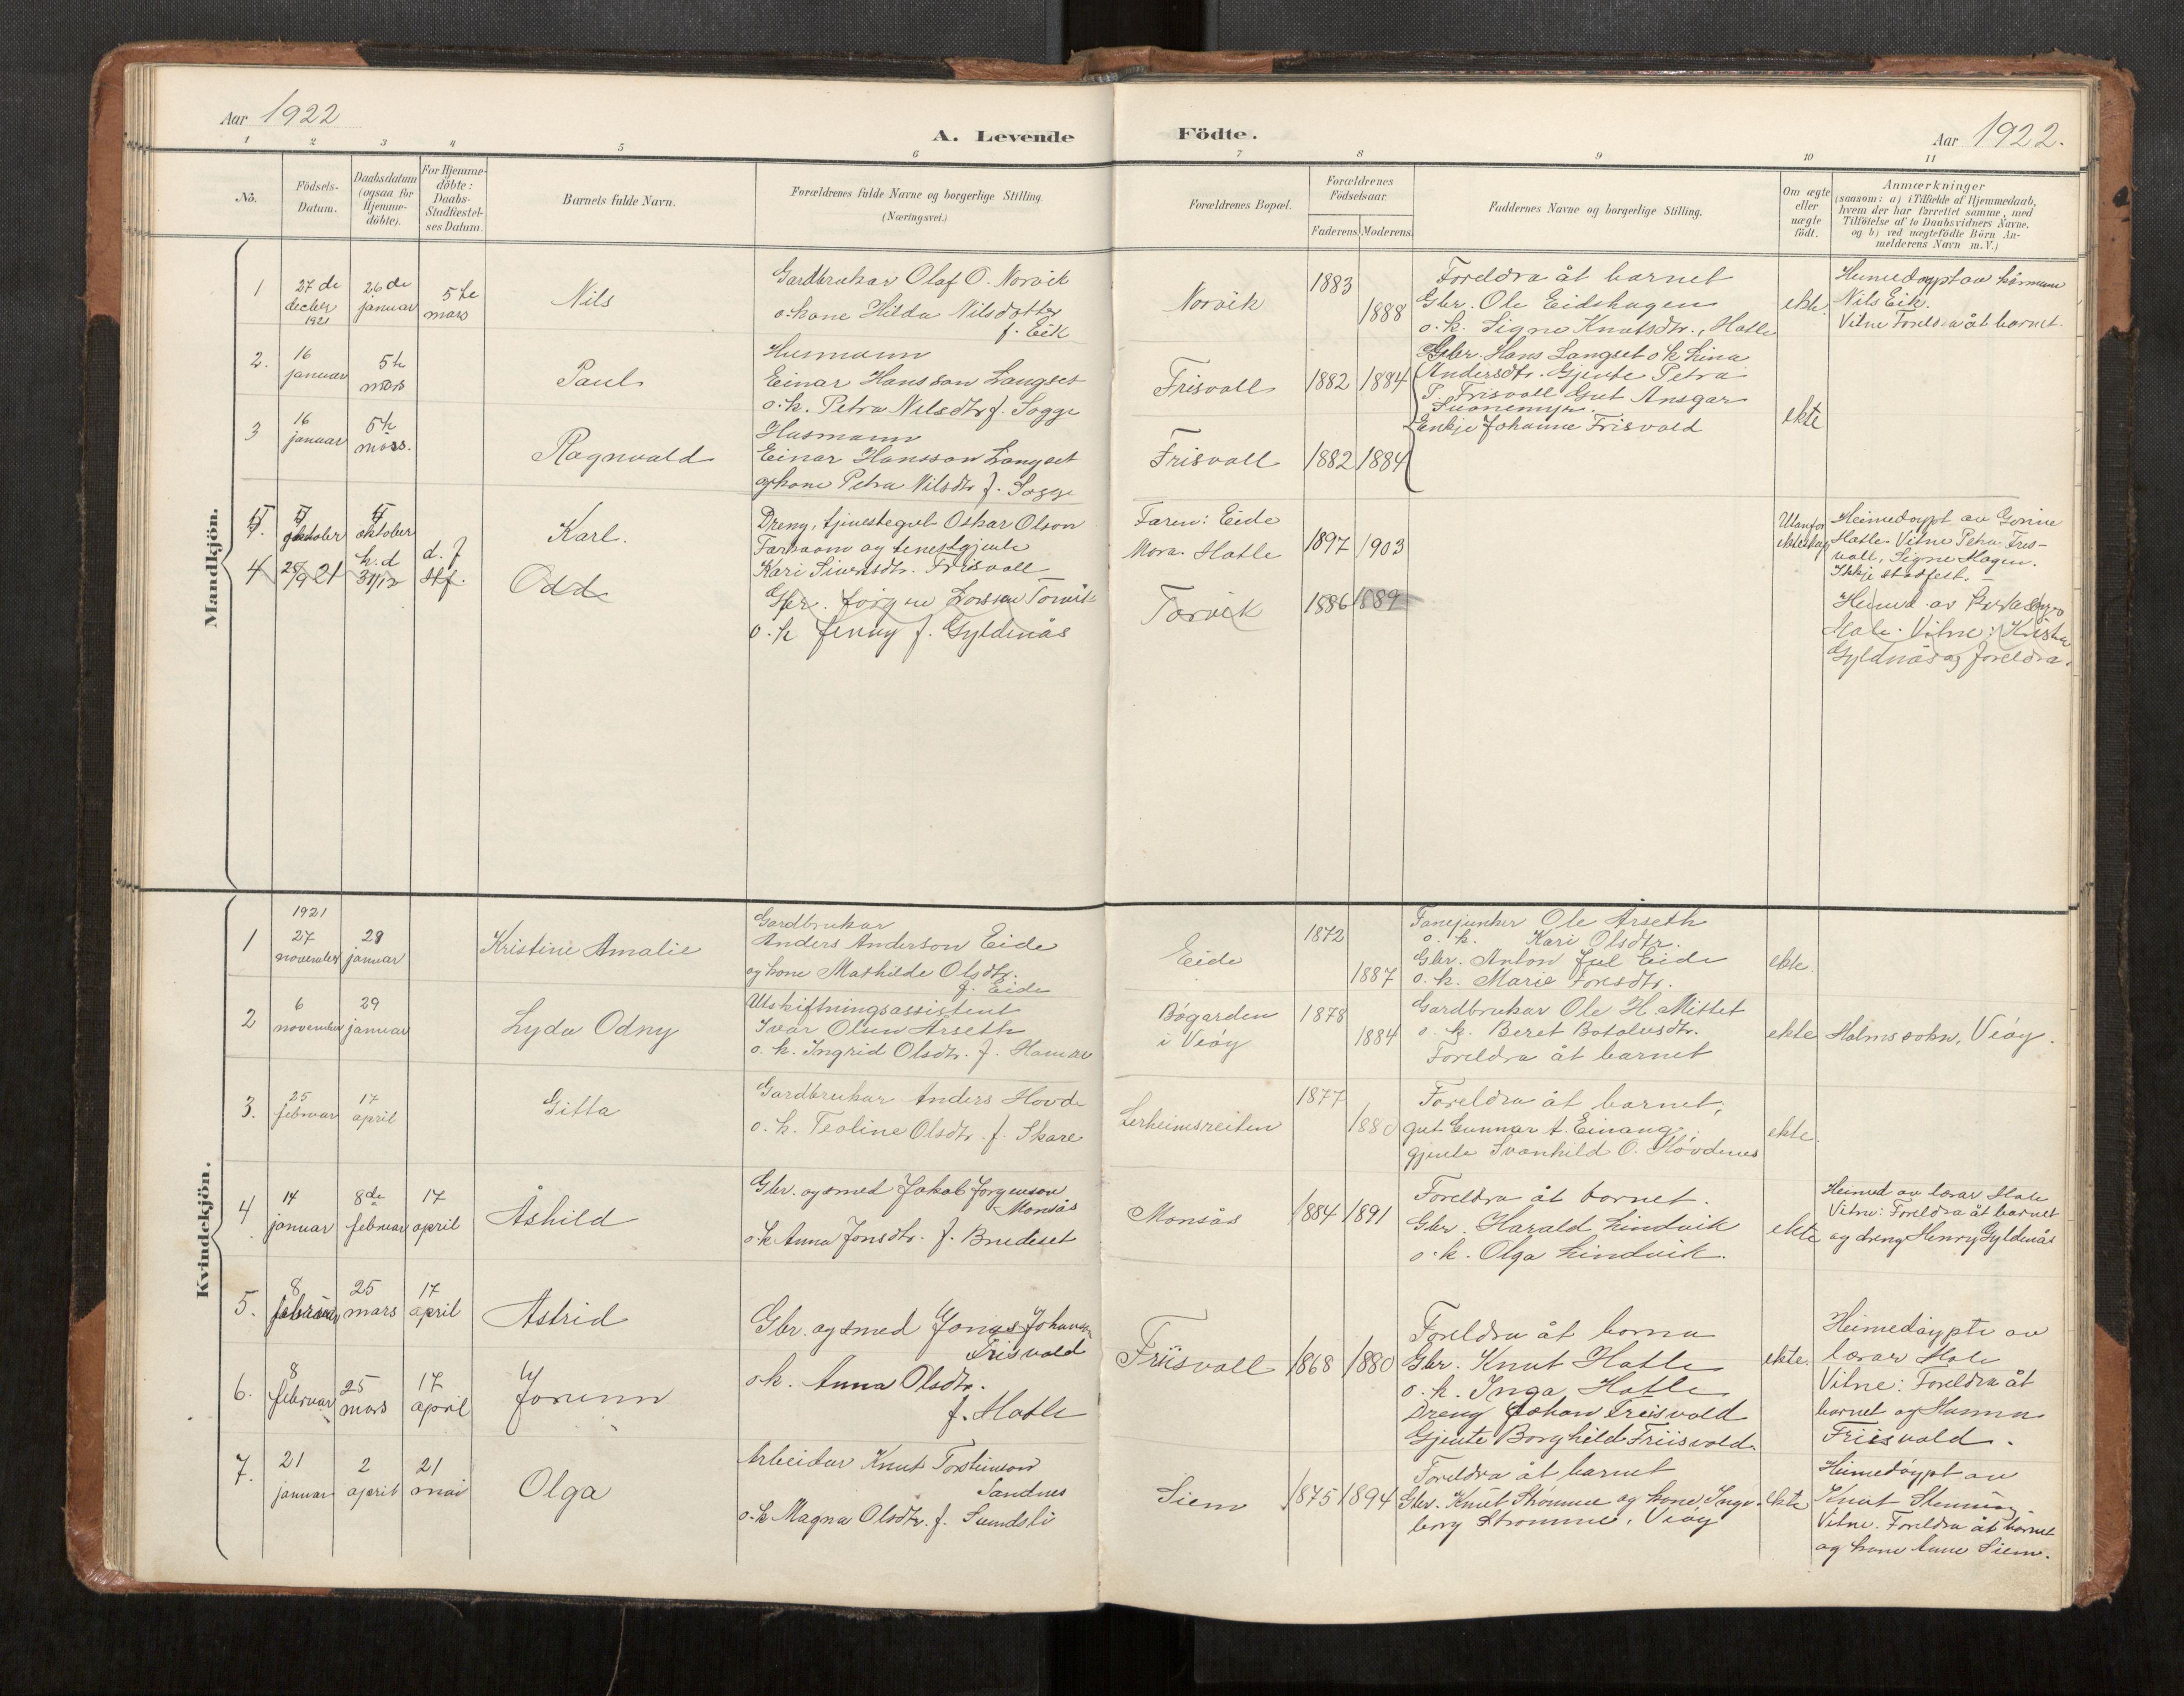 Aar 1922
A. Levende
Födte.
Aar 1922.
1 2 3 4 5 6 7 8 9 10 11
No.
Födsels-
Datum.
Daabsdatum
(ogsaa for
Hjemme-
döbte).
For Hjemme-
döbte:
Daabs-
Stadfæstel-
ses Datum.
Barnets fulde Navn.
Forældrenes fulde Navne og borgerlige Stilling
(Næringsvei.)
Forældrenes Bopæl.
Forældrenes
Födselsaar.
Faderens. Moderens.
Faddernes Navne og borgerlige Stilling.
Om ægte
eller
uægte
födt.
Anmærkninger
(saasom: a) i Tilfælde af Hjemmedaab,
hvem der har forrettet samme, med
Tilföielse af to Daabsvidners Navne,
og b) ved uægtefödte Börn An-
melderens Navn m. V.)
Mandkjön.
1
27 de
decber
1921
26 de
januar
5te
mars
Nils
Gardbrukar Olaf O. Norvik
o. kone Hilda Nilsdotter
f. Eik
Norvik
1883
1888
Foreldra åt barnet
Gbr. Ole Eidshagen
o. k. Signe Knutsdtr., Hatle
ekte.
Heimedøypt av
Nils Eik.
Vitne Foreldra åt barnet.
2.
16
januar
5te
mars
Paul
Husmann
Einar Hansson Langset
o. k. Petra Nilsdtr f. Sogge
Frisvoll
1882 1884
Gbr. Hans Langset o k Lina
Andersdtr. Gjente Petra
P. Frisvoll Gut Ansgar
Enkje Johanne Frisvold
ekte
3
16
januar
5te
mars.
Ragnvald
Husmann
Einar Hansson Langset
og kone Petra Nilsdtr f. Sogge
Frisvoll
1882 1884
oktober
oktober
Karl.
Dreng, tjenestegut Oskar Olson
og tenestgjente
Kari Sivertsdtr. Frisvoll
Faren: Eide
Mora. Hatle
1897 1903
Utanfor
ekteskap
Heimedøypt av Gorine
Hatle. Vitne Petra Fris-
voll, Signe Hagen.
Ikkje stadfest.
4
28/9 21
h. d
31/12
d. f
stf.
Odd
Gbr. Jörgen Torvik
o. k Jenny f. Gyldenås
Torvik
1886 1889
Heimed av
Hole. Vitne:
Gyldnås og foreldra.
Kvindekjön.
1
1921
27
november
29
januar
Kristine Amalie
Gardbrukar
Anders Anderson Eide
og kone Mathilde Olsdtr.
f. Eide
Eide
1872
1887
Fanejunker Ole Årseth
o. k. Kari Olsdtr.
Gbr. Anton Jul Eide
o. k. Marie Toresdtr.
ekte.
2
6
november
29
januar
Lyda Odny
Utskiftningsassistent
Ivar Olsen Årseth
o. k. Ingrid Olsdtr. f. Hamre
Bøgarden
i Veøy
1878
1884
Gardbrukar Ole H. Mittet
o. k. Beret Botolvsdtr.
Foreldra åt barnet
ekte
Holms sokn, Veøy.
3.
25
februar
17
april
Gitta
Gardbrukar Anders Hovde
o. k. Teoline Olsdtr. f. Skare
Lerheimsreiten
1877
1880
Foreldra åt barnet,
gut Gunnar A. Einang.
gjente Svanhild O. Hovdenes
ekte.
4
14
januar
8de
februar
17
april
Åshild
Gbr. og smed Jakob Jørgenson
Monsås
o. k Anna Jonsdtr. f. Bredeset
Monsås
1884 1891
Foreldra åt barnet.
Gbr. Harald Lindvik
o. k. Olga Lindvik.
ekte
Heimed av lærar Hole
Vitne: Foreldra åt barnet
og dreng Henry Gyldenås
5.
8
februar
25
mars
17
april
Astrid
Gbr. og smed Jonas Johanson
Frisvold
o. k. Anna Olsdtr.
f. Hatle
Friisvoll
1868 1880
Foreldra åt borna
Gbr. Knut Hatle
o. k. Inga Hatle
Dreng Johan Friisvold
Gjente Borghild Friisvold.
ekte.
Heimedøypte av
lærar Hole
Vitne: Foreldra åt
barnet og Hanna
Friisvold.
6.
8
februar
25
mars
17
april
Jorunn
7.
21
januar
2
april
21
mai
Olga
Arbeidar Knut Torsteinson
Sandnes
o. k Magna Olsdtr. f. Sundsli
Siem
1875 1894
Foreldra åt barnet
Gbr. Knut Strømme og kone Inge-
borg Strømme, Veøy
ekte
Heimedøypt av
Knut
Vitne. Foreldra åt barnet
og kone Anne Siem.